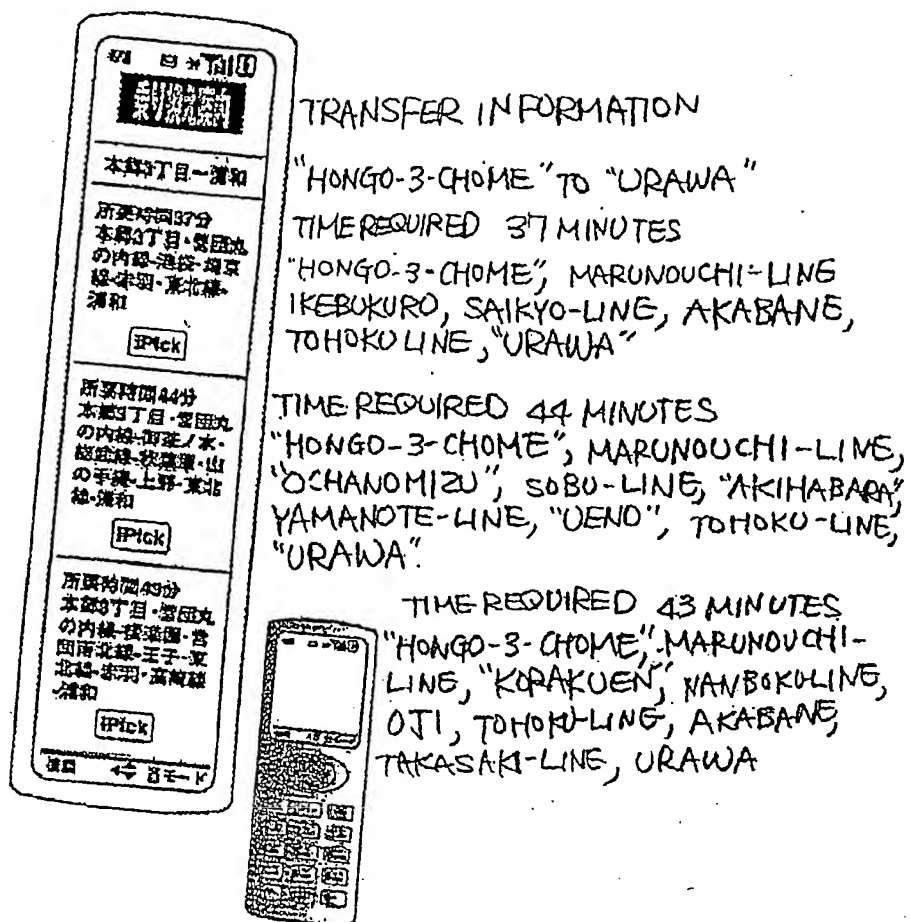 本郷3丁目ー浦和
所要時間37分
本郷3丁目・営団丸
の内線-池袋-埼京
線-赤羽・東北線-
浦和
iPick
所要時間44分
本郷3丁目・営団丸
の内線-御茶ノ水・
総武線-秋葉原・山
の手線-上野・東北
線-浦和
iPick
所要時間43分
本郷3丁目・営団丸
の内線-後楽園・営
団南北線-王子-東
北線-赤羽・高崎線
-浦和
iPick
モード
TRANSFER INFORMATION
"HONGO-3-CHOME" TO "URAWA"
TIME REQUIRED 37 MINUTES
"HONGO-3-CHOME", MARUNOUCHI-LINE
IKEBUKURO, SAIKYO-LINE, AKABANE,
TOHOKU LINE, "URAWA"
TIME REQUIRED 44 MINUTES
"HONGO-3-CHOME", MARUNOUCHI-LINE,
"OCHANOMIZU", SOBU-LINE, "AKIHABARA",
YAMANOTE-LINE, "UENO", TOHOKU-LINE,
"URAWA".
TIME REQUIRED 43 MINUTES
"HONGO-3-CHOME", MARUNOUCHI-
LINE, "KORAKUEN", NANBOKU-LINE,
OJI, TOHOKU-LINE, AKABANE,
TAKASAKI-LINE, URAWA